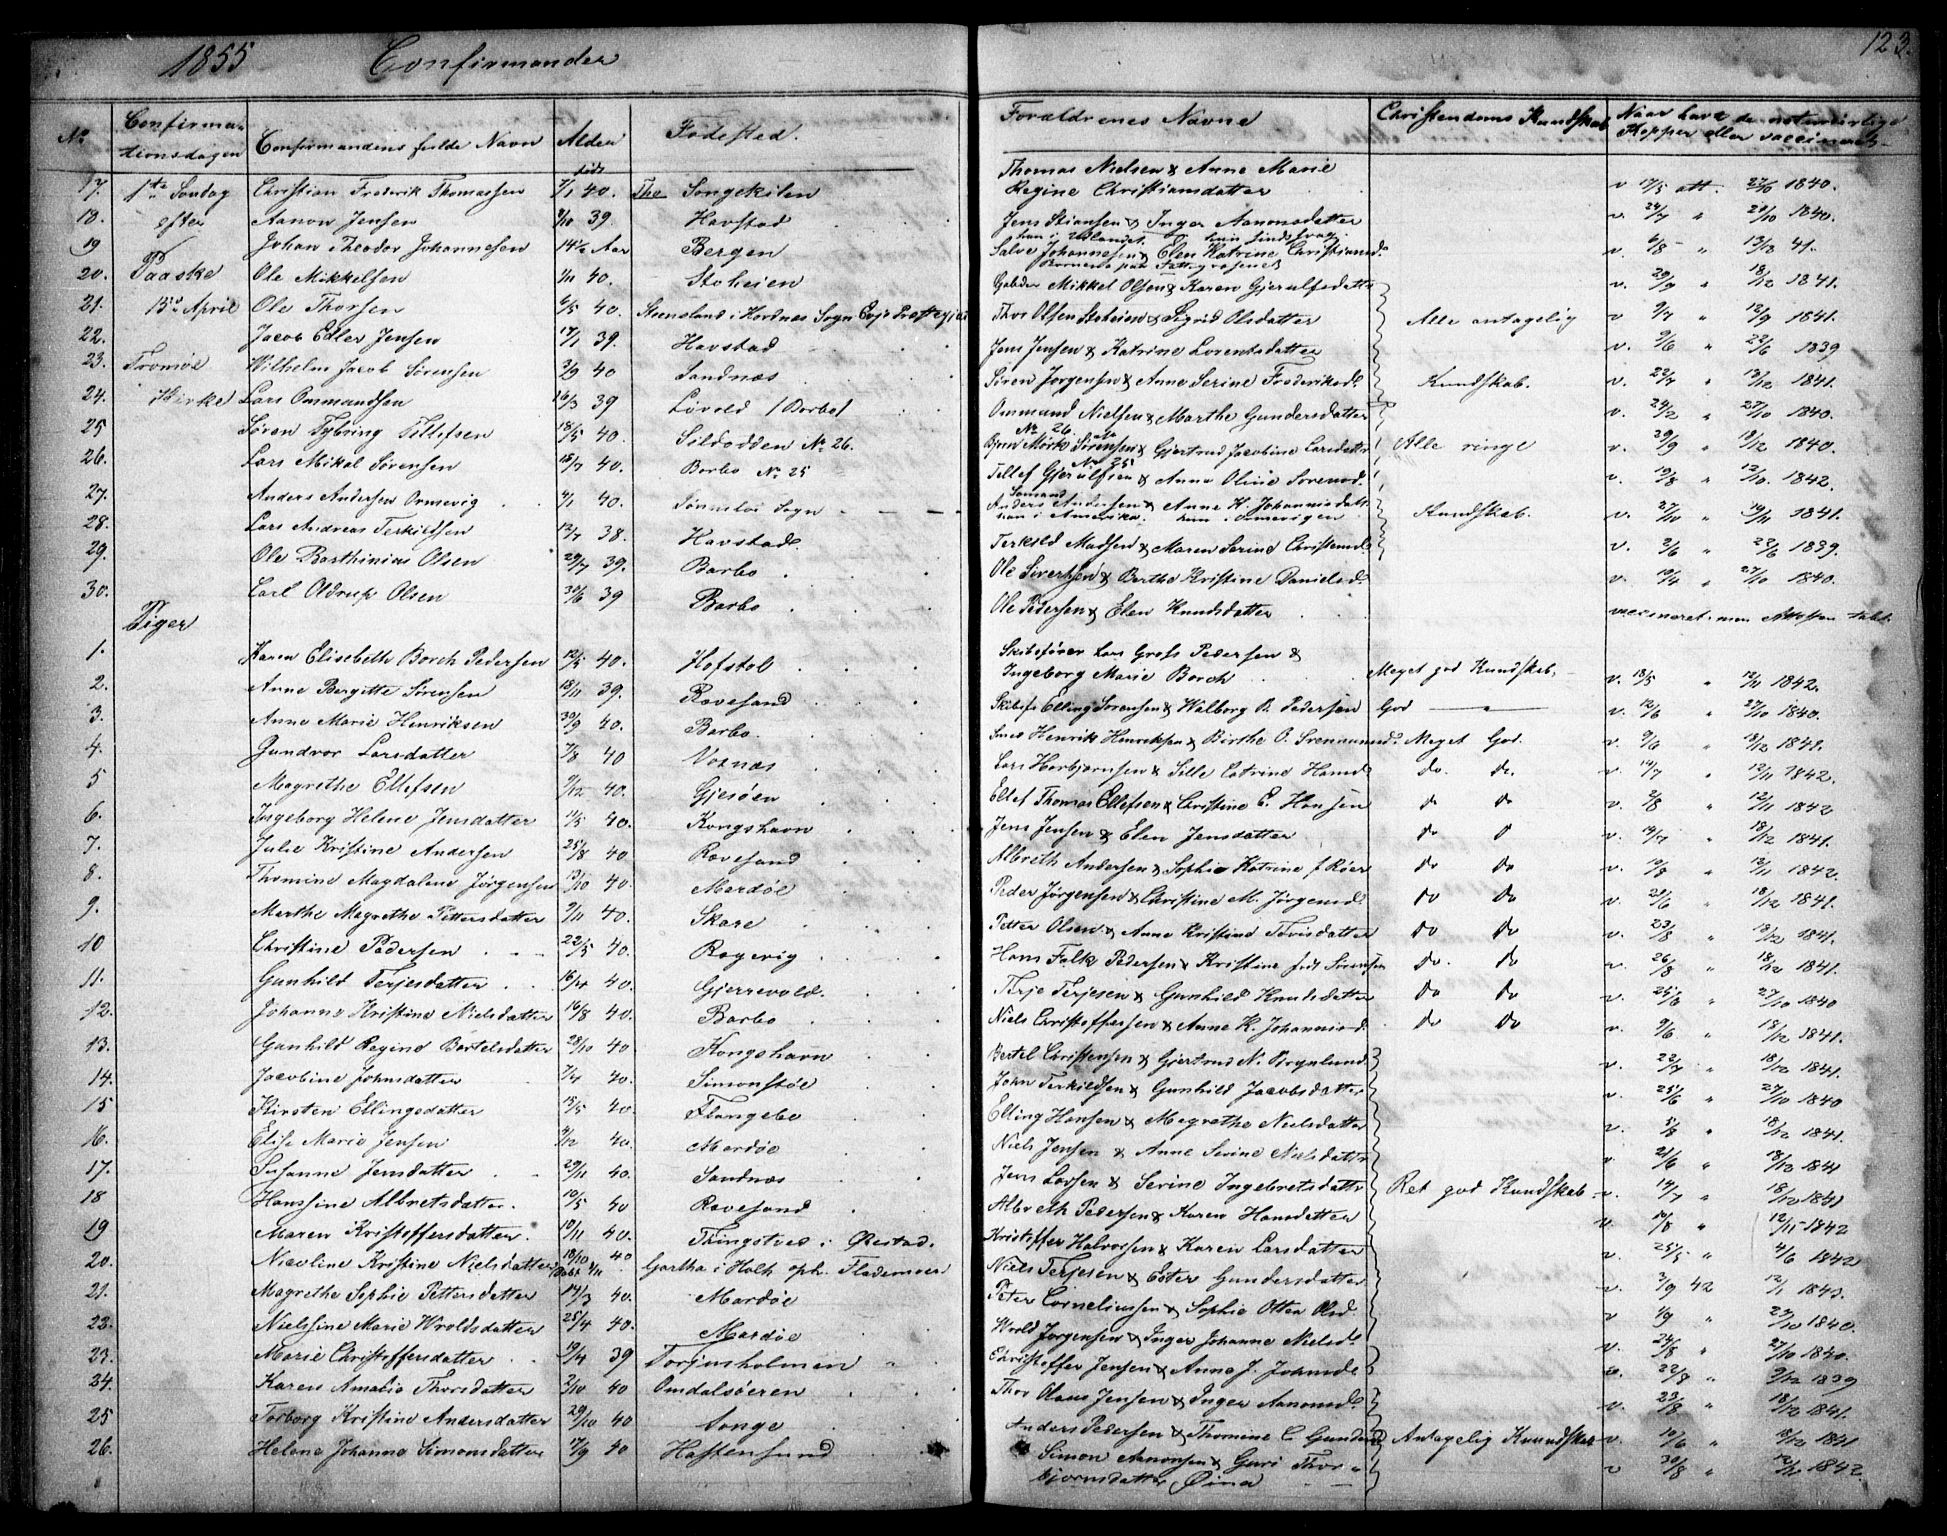 1855 Confirmander
123.
No Confirmationsdagen Confirmandens fulde Navn Alder født Fødested. Forældrenes Navne Christendoms Kundskab Naar havt de naturlige Kopper eller vaccineret
17. 1ste Søndag Christian Frederik Thomassen 7/1 40. Songekilen Thomas Nielsen & Anne Marie Regine Christiansdatter v 17/5 att. 27/6 1840.
18. efter Aanon Jensen 9/10 39 Havstad Jens Stiansen & Inger Aanonsdatter v. 24/7 " 29/10 1840.
19 Johan Theodor Johannesen 14½ Aar Bergen Salve Johannesen & Elen Katrine Christiansd. v. 6/8 " 13/12 41.
20. Paaske Ole Mikkelsen 1/11 40. Stoheien Mikkel Olsen & Karen Gjerulfsdatter v. 29/9 " 18/12 1841.
21. 15de April Ole Thorsen 6/5 40. Steensland i Hordnæs Sogn Evje Præstegjeld Thor Olsen Stoheien & Sigrid Olsdatter Alle antagelig v 9/7 " 12/9 1841.
22. Jacob Edler Jensen 17/1 39. Havstad Jens Jensen & Katrine Lorentsdatter v. 2/6 " 22/6 1839
23. Tromøe Wilhelm Jacob Sørensen 3/9 40 Sandnæs Søren Jørgensen & Anne Serine Frederiksd. Kundskab. v. 22/7 " 13/12 1841.
24. Kirke Lars Ommundsen 16/3 39 Løvold /Barbo/ Ommund Nielsen & Marthe Gundersdatter v. 24/2 " 27/10 1840.
25 Søren Tybring Tellefsen 18/5 40. Sildodden No. 26. No 26. Bjørn Mørk Sørensen & Gjertrud Jacobine Larsdatter Alle ringe v. 29/9 " 18/12 1840.
26. Lars Mikal Sørensen 15/7 40. Barbo No. 25 No 25 Tellef Gjerulfsen & Anne Oline Sørensd. v. 19/8 " 12/10. 1842.
27. Anders Andersen Ormevig 4/1 40. Sønneløv Sogn Sømand Anders Andersen & Anne K. Johannisdatt. han i Amerika. hun i Ormevigen Kundskab. v. 27/10 " 19/11 1841.
28. Lars Andreas Terkildsen 12/7 38. Havstad. Terkild Madsen & Maren Serine Christensd. v. 2/6 " 22/6 1839.
29. Ole Barthinius Olsen 29/7 39. Barbo Ole Sivertsen & Berthe Kristine Danielsd. v. 19/4 " 27/10 1840.
30. Carl Oldrup Olsen 30/6 39 Barbo Ole Pedersen & Elen Knudsdatter vaccineret. men Attesten tabt.
Piger
1. Karen Elisebeth Borch Pedersen 12/5 40. Hofstol Skibsfører Lars Grofs Pedersen & Ingeborg Marie Borch Meget god Kundskab. v. 18/5 " 12/11 1842.
2. Anne Bergitte Sørensen 18/11 39. Revesand Skibsfr Elling Sørensen & Walborg P. Pedersen God — " — v. 12/6 " 27/10 1840.
3. Anne Marie Henriksen 30/9 40. Barbo. Henrik Henriksen & Birthe O. Meget God. v. 9/6 " 18/12 1841.
4. Gundvor Larsdatter 7/8 40 Voxnæs Lars Herbjørnsen & Sille Catrine Hansd. do. do. v. 14/7 " 12/11 1842.
5 Magrethe Ellefsen 9/12 40. Gjesøen Ellef Thomas Ellefsen & Christine E. Hansen do do v. 2/8 " 12/11 1842
6. Ingeborg Helene Jensdatter 11/5 40. Kongshavn Jens Jensen & Elen Jensdatter do d v. 19/7 " 18/12 1841.
7. Julie Kristine Andersen 25/8 40 Revesand Albreth Andersen & Sophie Katrine f Røer do do v. 19/8 " 12/11 1842.
8. Thomine Magdalene Jørgensen 13/10 40. Merdøe Peder Jørgensen & Christine M. Jørgensd. do do v. 21/6 " 18/12 1841.
9. Marthe Magrethe Pettersdatter 9/11 40. Skare Petter Olsen & Anne Kristine Torisdatter do do v. 23/8 " 18/12 1841.
10 Christine Pedersen 22/5 40. Rægevig Hans Falk Pedersen & Kristine født Sørensen do. do v. 26/8 " 18/12 1841.
11. Gunhild Terjesdatter 16/4 40. Gjerrevold. Terje Terjesen & Gunhild Knudsdatter do do v. 25/6 " 27/10 1840
12. Johanne Kristine Nielsdatter 16/8 40. Barbo Niels Christoffersen & Anne K. Johannisd. do do v. 9/6 " 18/12 1841.
13. Gunhild Regine Bertelsdatter 28/10 40 Kongshavn Bertel Christensen & Gjertrud N. v. 22/7 " 18/12 1841.
14. Jacobine Johnsdatter 7/4 40. Simonstøe John Terkildsen & Gunhild Jacobsdatter v. 25/6 " 27/10 1840
15 Kirsten Ellingsdatter 15/5 40. Flangebo Elling Hansen & Magrethe Nielsdatter v. 5/8 " 18/12 1841.
16. Elise Marie Jensen 4/12 40. Merdøe Niels Jensen & Anne Serine Nielsdatter v 21/6 " 18/12 1841
17. Susanne Jensdatter 29/11 40. Sandnæs Jens Larsen & Serine Ingebretsdatter Ret god Kundskab v. 14/7 " 18/12 1841
18 Hanssine Albretsdatter. 10/5 40 Revesand Albreth Pedersen & Karen Hansdatter v. 19/8 " 12/11 1842
19 Maren Kristoffersdatter 10/11 40. Thingstved i Øiestad. Kristoffer Halvorsen & Karen Larsdatter v. 25/5 " 4/6 1842
20. Nicoline Kristine Nielsdatter 18/10 40 Døbt 1/11 Gartha i Holt oph. Fladernoes Niels Terjesen & Ester Gundersdatter v. 3/9 42 12/1 1843.
21. Magrethe Sophie Pettersdatter 14/3 40. Mærdøe Peter Corneliussen & Sophie Otter Olsd. v 1/9 " 27/10 1840.
22. Nielsine Marie Wroldsdatter 25/4 40. Mærdøe Wrold Jørgensen & Inger Johanne Nielsd. v. 24/8 " 27/10 1840.
23. Marie Christoffersdatter 19/4 39 Torjusholmen Christoffer Jensen & Anne J. Johnsd. v. 22/8 " 9/12 1839
24. Karen Amalia Thorsdatter 2/10 40 Omdalsøeren Thor Olaus Jensen & Inger Aanonsd. v. 23/8 " 18/12 1841.
25 Torborg Kristine Andersdatter 29/10 40 Songe Anders Pedersen & Thomine C. Gundersd. Antagelig Kundskab v. 10/6 " 18/12 1841
26. Helene Johanne Simonsdatter 17/9 40 Hastensund Simon Aanonsen & Guri Thorbjørnsdatter Øina v 30/8 " 12/11 1842.